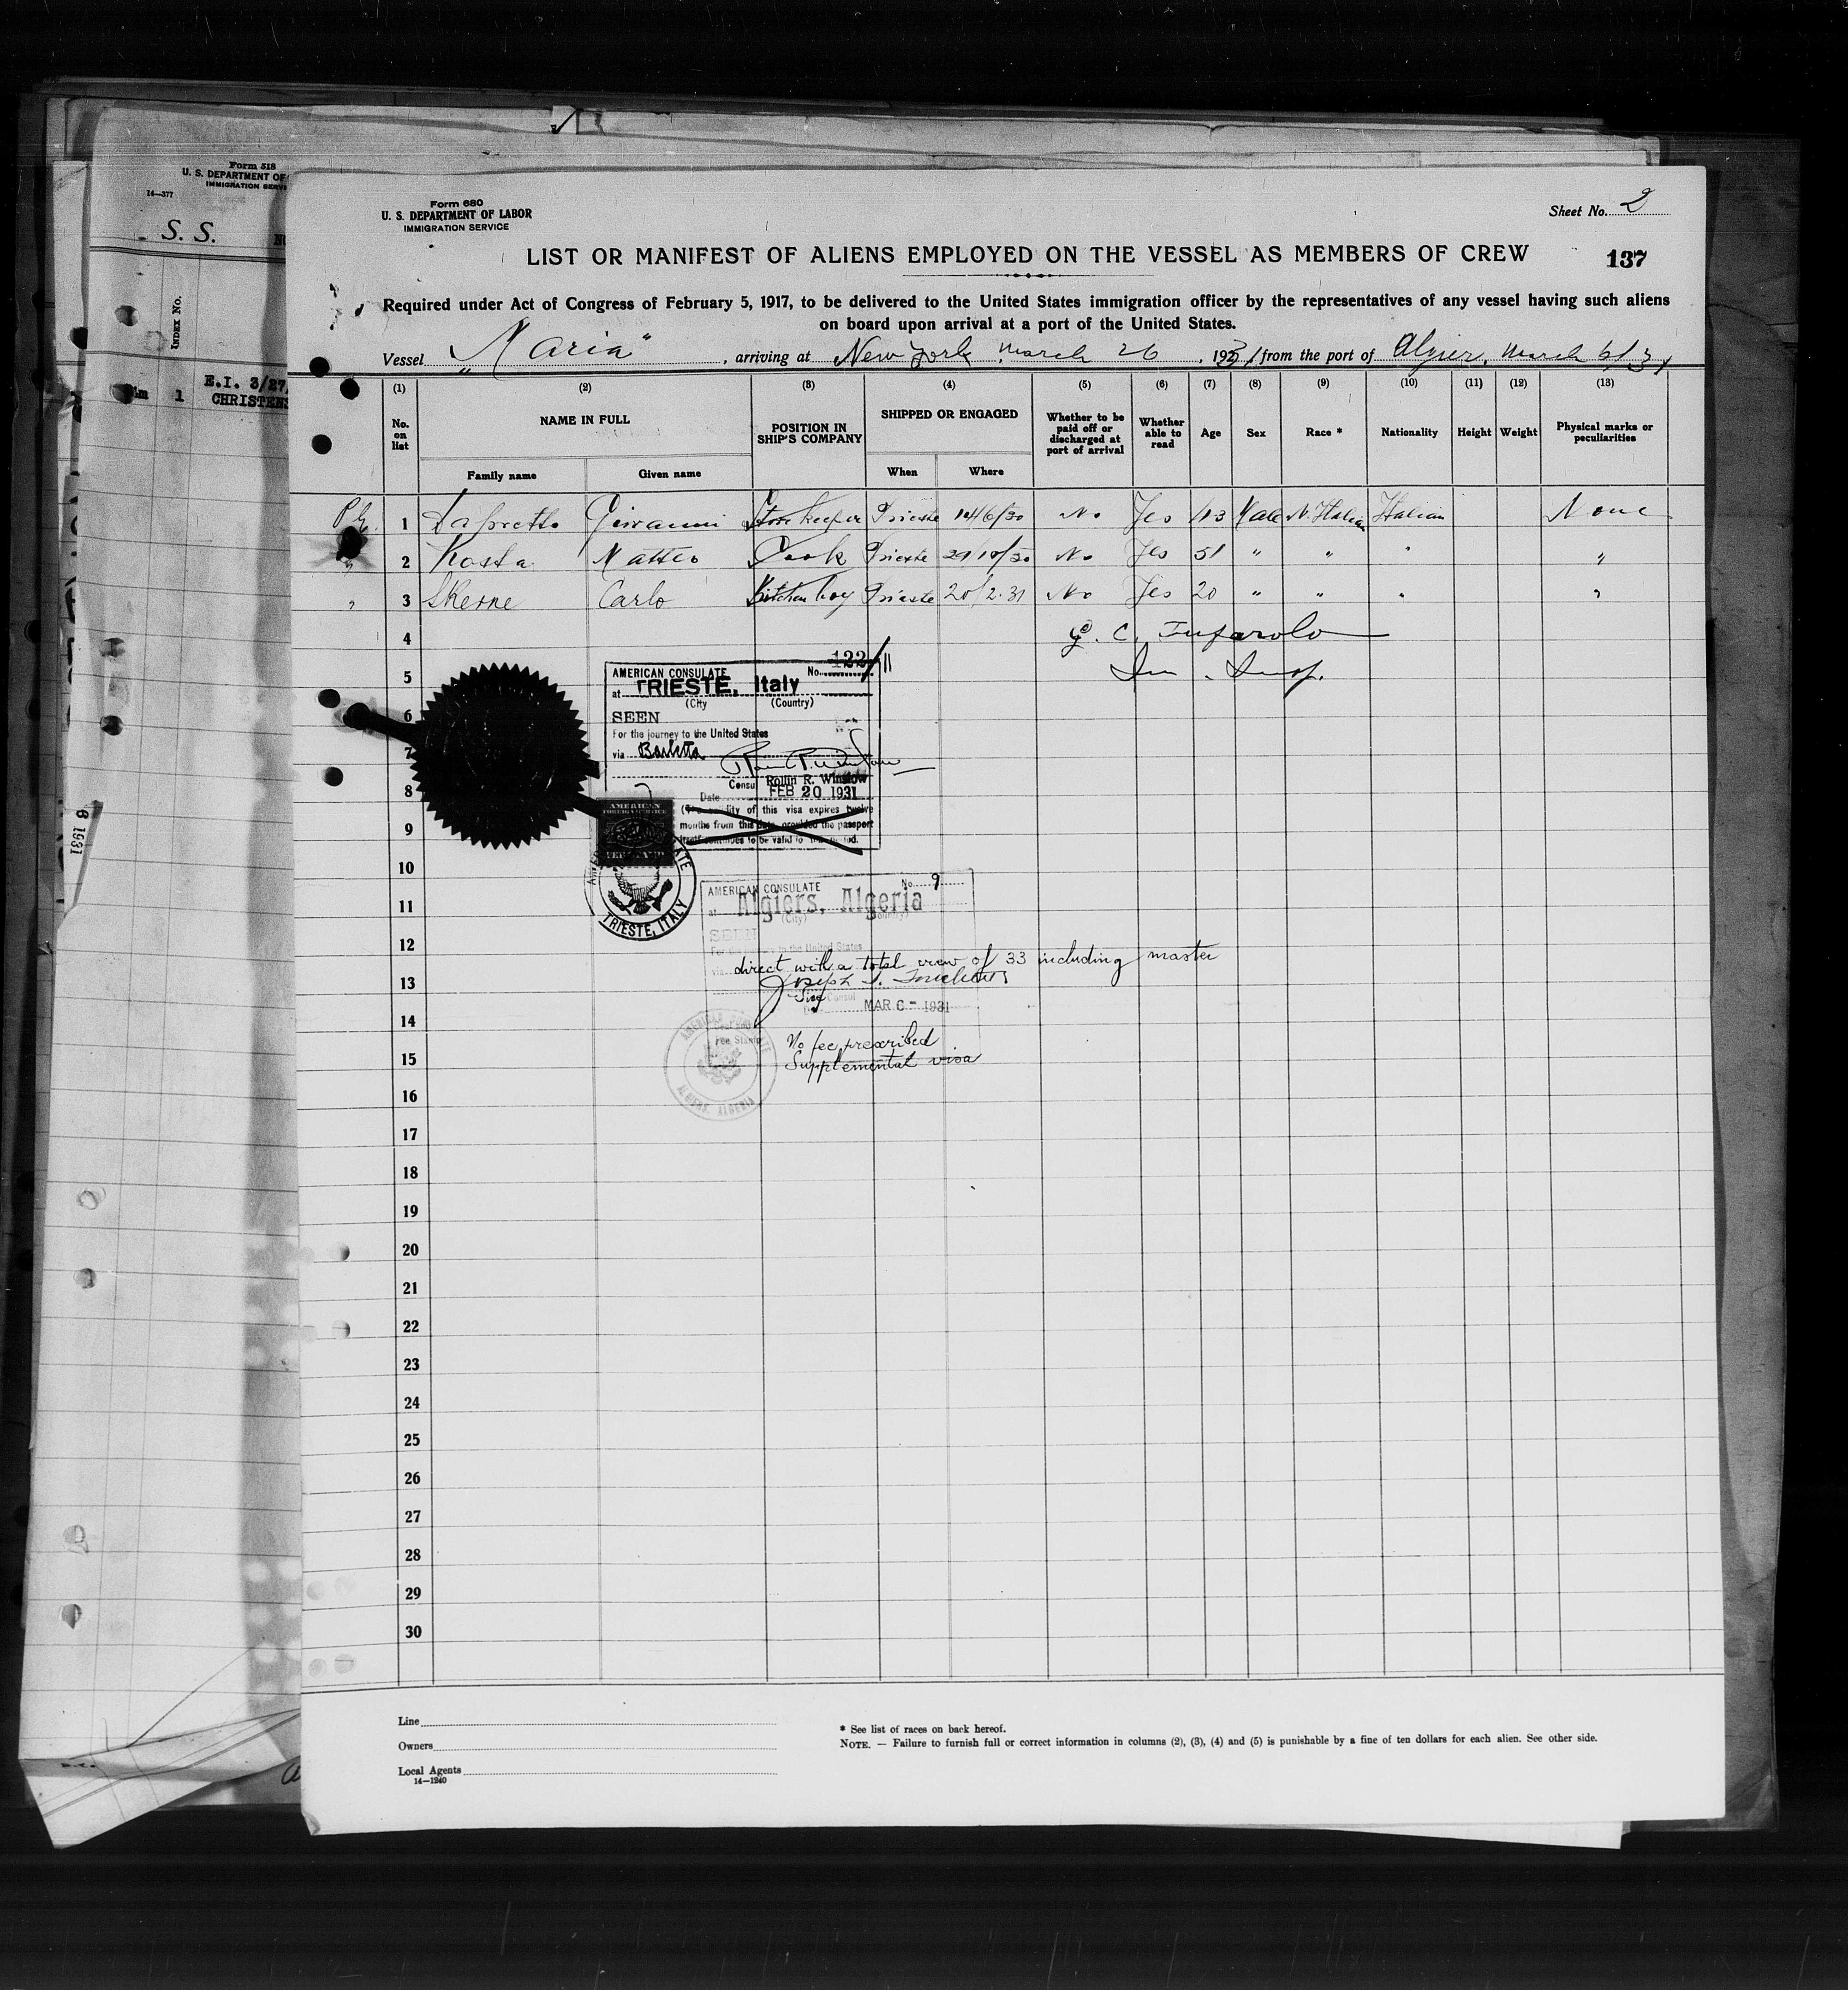 Form 518
U. S. DEPARTMENT OF
IMMIGRATION SERVI
14—377
S. S.
INDEX No.
1
E.I. 3/27
CHRISTENS
6 1931
Form 680
U. S. DEPARTMENT OF LABOR
IMMIGRATION SERVICE
Sheet No. 2
LIST OR MANIFEST OF ALIENS EMPLOYED ON THE VESSEL AS MEMBERS OF CREW
137
Required under Act of Congress of February 5, 1917, to be delivered to the United States immigration officer by the representatives of any vessel having such aliens
on board upon arrival at a port of the United States.
Vessel „Maria“, arriving at New York March 26, 1931 from the port of Algier, March 6/31
(1) (2) (3) (4) (5) (6) (7) (8) (9) (10) (11) (12) (13)
No. on list
NAME IN FULL
Family name Given name
POSITION IN SHIP'S COMPANY
SHIPPED OR ENGAGED
When Where
Whether to be paid off or discharged at port of arrival
Whether able to read
Age Sex Race * Nationality Height Weight
Physical marks or peculiarities
1 Giovanni Storekeeper Trieste 14/6/30 No Yes 43 Male N. Italian Italian None
2 Kosta Matteo Cook Trieste 29/10/30 No Yes 51 " " " "
3 Skerne Carlo Kitchen boy Trieste 20/2.31 No Yes 20 " " " "
4
G. C. Tufarolo
5
Im. Insp.
6
7
8
9
10
11
12
13
14
15
16
17
18
19
20
21
22
23
24
25
26
27
28
29
30
AMERICAN CONSULATE No. 122/11
at TRIESTE, Italy
(City (Country)
SEEN
For the journey to the United States
via Barletta
Rollin R. Winslow
Consul
Date FEB 20 1931
(The validity of this visa expires twelve
months from this date provided the passport
itself continues to be valid
AMERICAN
FOREIGN SERVICE
TRIESTE, ITALY
AMERICAN CONSULATE No. 9
at Algiers, Algeria
(City) (Country)
SEEN
For the journey to the United States
via direct with a total crew of 33 including master
Consul
MAR 6 - 1931
Fee Stamp
No fee prescribed
Supplemental visa
ALGIERS, ALGERIA
Line
Owners
Local Agents
14—1240
* See list of races on back hereof.
NOTE. — Failure to furnish full or correct information in columns (2), (3), (4) and (5) is punishable by a fine of ten dollars for each alien. See other side.